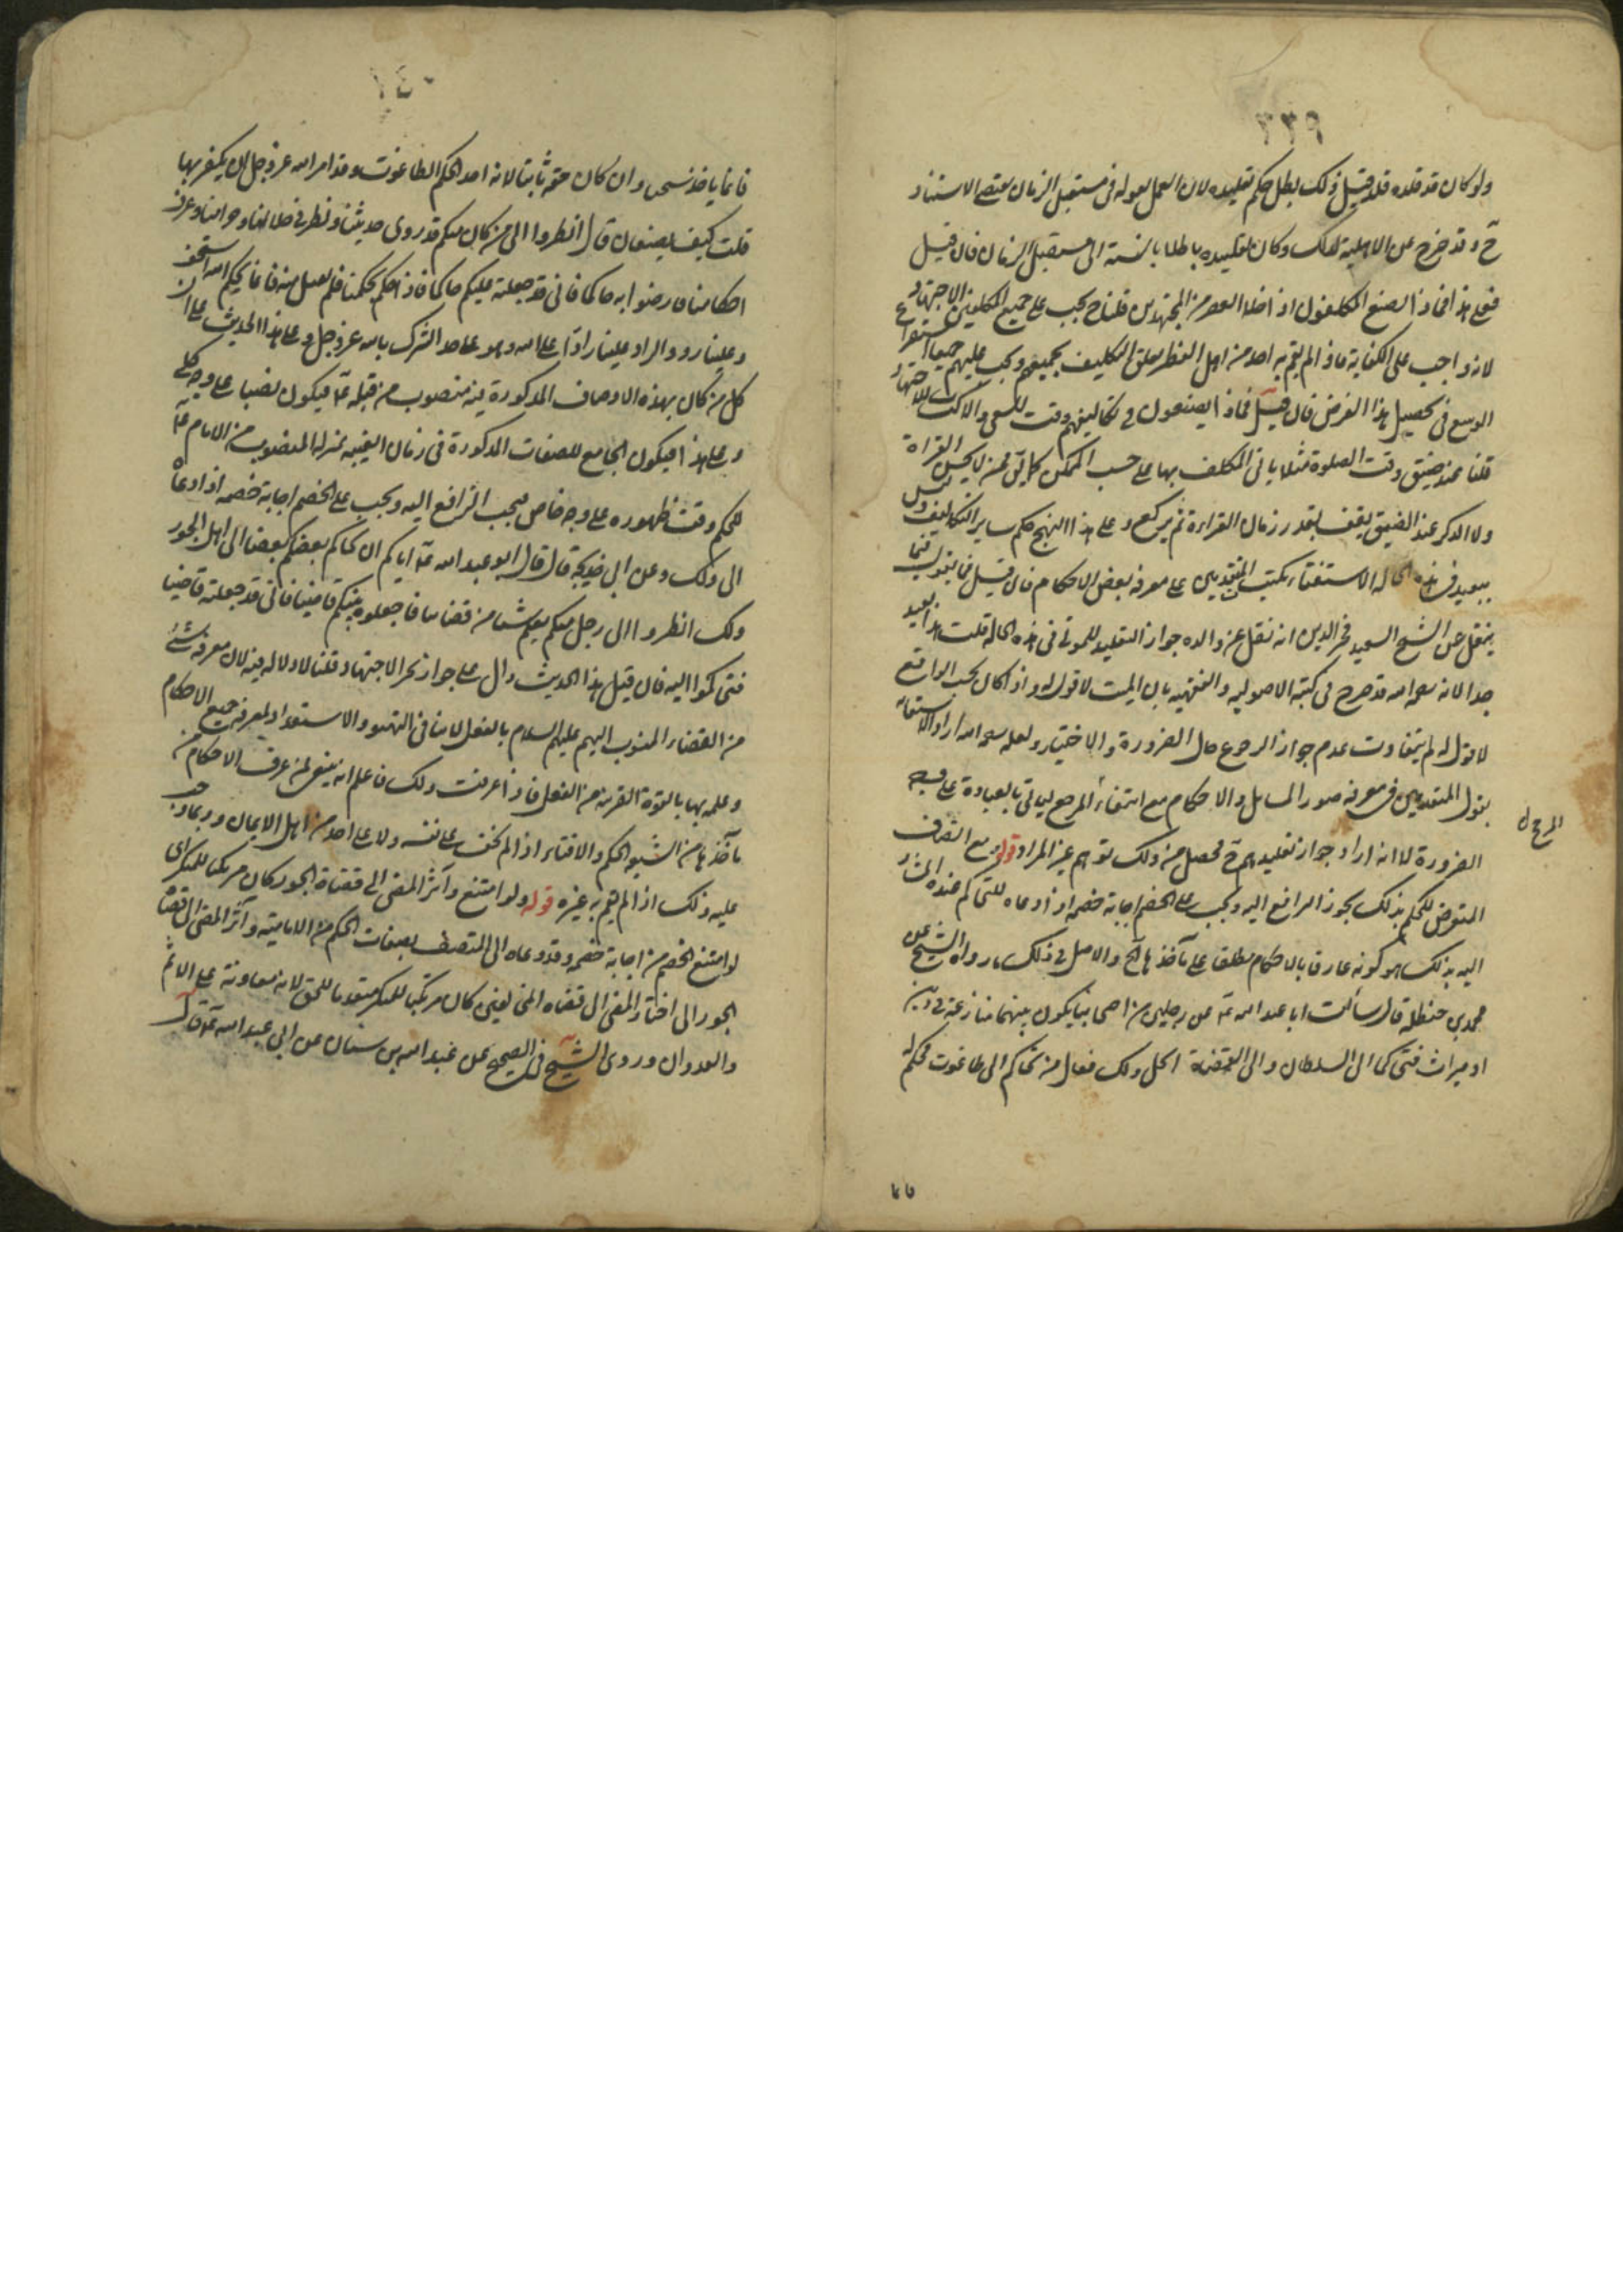 ٢٣٩
ولو كان قد قلده قبل ذلك بطل حكم تقليده لان العمل بقوله فى مستقبل الزمان يقتضى الاستناد
ح وقد خرج عن الاهلية لذلك وكان تقليده باطلا بالنسبة الى مستقبل الزمان فان قيل
فعلى هذا فماذا يصنع المكلفون اذا خلا العصر من المجتهدين قلنا ح يجب على جميع المكلفين الاجتهاد
لانه واجب على الكفاية فاذا لم يقم به احد من اهل العصر تعلق التكليف بجميعهم ويجب عليهم جميعا استفراغ
الوسع فى تحصيل هذا الفرض فان قيل فماذا يصنعون فى تكاليفهم وقت السعى والاكتساب للاجتهاد
قلنا عند ضيق وقت الصلوة مثلا ياتى المكلف بها على حسب الممكن كما يأتى من لا يحسن القراءة
ولا الذكر عند الضيق يقف بقدر زمان القراءة ثم يركع وعلى هذا النهج حكم ساير التكاليف وليس
ببعيد فى هذه الحالة الاستغناء بكتب المتقدمين على معرفة بعض الاحكام فان قيل فما تقول فيما
ينقل عن الشيخ السعيد فخر الدين انه نقل عن والده جواز التقليد للموتى فى هذه الحالة قلت هذا بعيد
جدا لانه رحمه الله قد صرح فى كتبه الاصولية والفقهية بان الميت لا قول له واذا كان بحسب الواقع
لا قول له لم يتفاوت عدم جواز الرجوع حال الضرورة والاختيار ولعله رحمه الله اراد الاستعانة
بقول المتقدمين فى معرفة صور المسايل والاحكام مع انتفاء المرجع لياتى بالعبادة على وجه
المرجع
الضرورة لا انه اراد جواز تقليدهم ح فحصل من ذلك توهم غير المراد قوله ومع اتصاف
المتعرض للحكم بذلك يجوز الترافع اليه ويجب على الخصم اجابة خصمه اذا دعاه للتحاكم عنده المشار
اليه بذلك هو كونه عارفا بالاحكام مطلقا على مآخذها الخ والاصل فى ذلك ما رواه الشيخ عن
محمد بن حنظلة قال سألت ابا عبد الله ع عن رجلين من اصحابنا يكون بينهما منازعة فى دين
او ميراث فتحاكما الى السلطان والى القضاة ايحل ذلك فقال من تحاكم الى طاغوت فحكم له
فانما
٢٤٠
فانما ياخذ سحتا وان كان حقه ثابتا لانه اخذ بحكم الطاغوت وقد امر الله عز وجل ان يكفر بها
قلت كيف يصنعان قال انظروا الى من كان منكم قد روى حديثنا ونظر فى حلالنا وحرامنا وعرف
احكامنا فارضوا به حاكما فانى قد جعلته عليكم حاكما فاذا حكم بحكمنا فلم يقبل منه فانما بحكم الله استخف
وعلينا رد والراد علينا راد على الله وهو على حد الشرك بالله عز وجل وعلى هذا الحديث على ان
كل من كان بهذه الاوصاف المذكورة فيه منصوب من قبله ع فيكون نصبا على وجه كلى
وعلى هذا فيكون الجامع للصفات المذكورة فى زمان الغيبة بمنزلة المنصوب من الامام ع
للحكم وقت ظهوره على وجه خاص فيجب الترافع اليه ويجب على الخصم اجابة خصمه اذا دعاه
الى ذلك وعن ابى خديجة قال قال ابو عبد الله ع اياكم ان يحاكم بعضكم بعضا الى اهل الجور
ولكن انظروا الى رجل منكم يعلم شيئا من قضايانا فاجعلوه بينكم قاضيا فانى قد جعلته قاضيا
فتحاكموا اليه فان قيل هذا الحديث دال على جواز تجزى الاجتهاد قلنا لا دلالة فيه لان معرفة شئ
من القضاء المنسوب اليهم عليهم السلام بالفعل لا ينافى التهيؤ والاستعداد لمعرفة جميع الاحكام
وعلمه بها بالقوة القريبة من الفعل فاذا عرفت ذلك فاعلم انه ينبغى لمن عرف الاحكام من
مآخذها من الشيعة الحكم والافتاء اذا لم يخف على نفسه ولا على احد من اهل الايمان وربما وجب
عليه ذلك اذا لم يقم به غيره قوله ولو امتنع وآثر المضى الى قضاة الجور كان مرتكبا للمنكر اى
لو امتنع الخصم من اجابة خصمه وقد دعاه الى المتصف بصفات الحكم من الامامية وآثر المضى الى قضاة
الجور اى اختار المضى الى قضاة المخالفين كان مرتكبا للمنكر متعديا للحق لانه معاونة على الاثم
والعدوان وروى الشيخ فى الصحيح عن عبد الله بن سنان عن ابى عبد الله ع قال